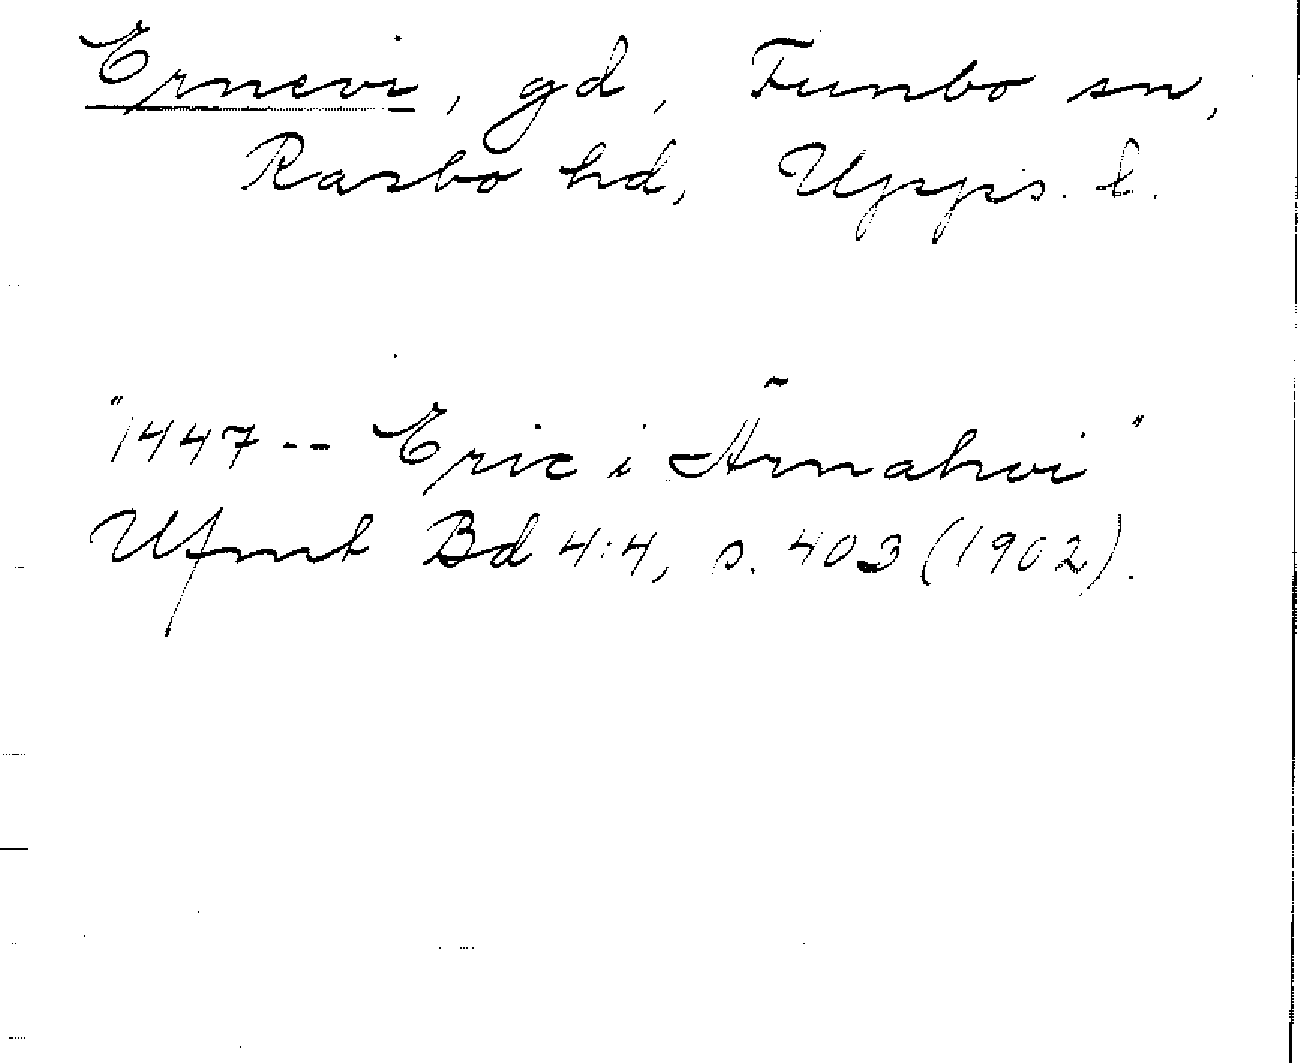 Ernevi, gd, Funbo sn,
Rasbo hd, Upps. l.
"1447 -- Eric i Ärnahvi"
Ufmt Bd 4:4, s. 403 (1902).